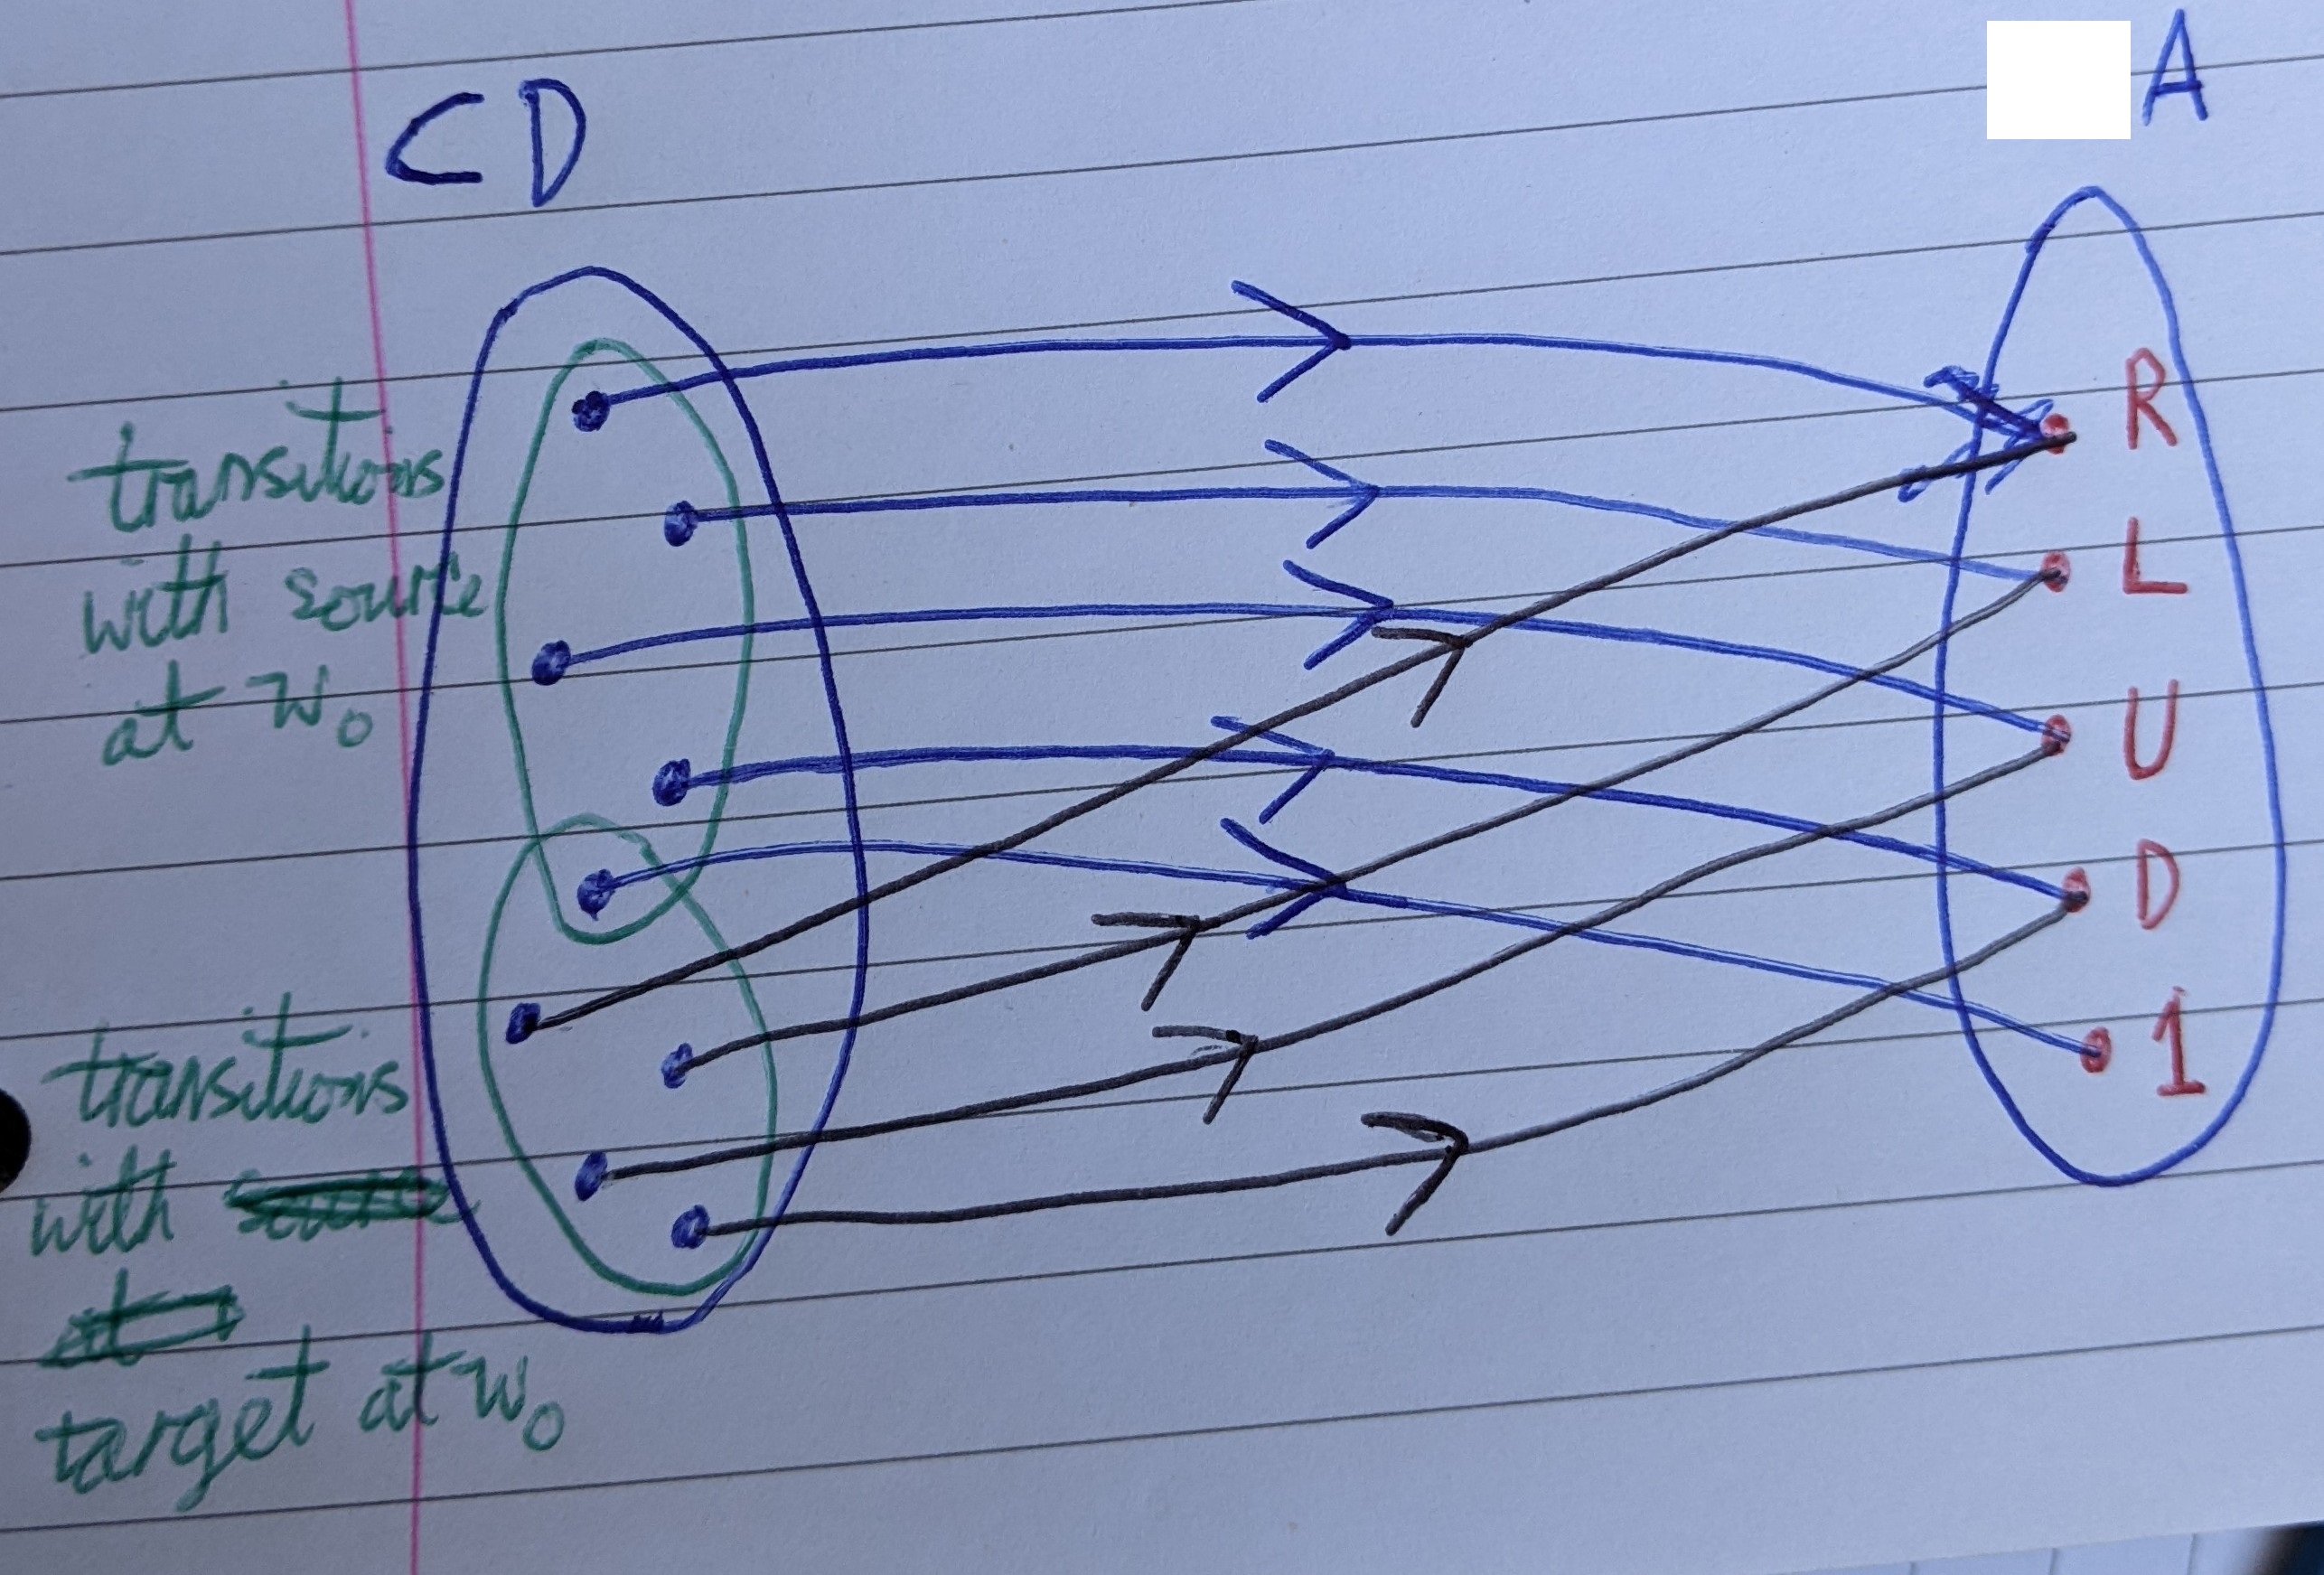 CD
A
transitions
with source
at w₀
R
L
U
D
1
transitions
with source
at
target at w₀